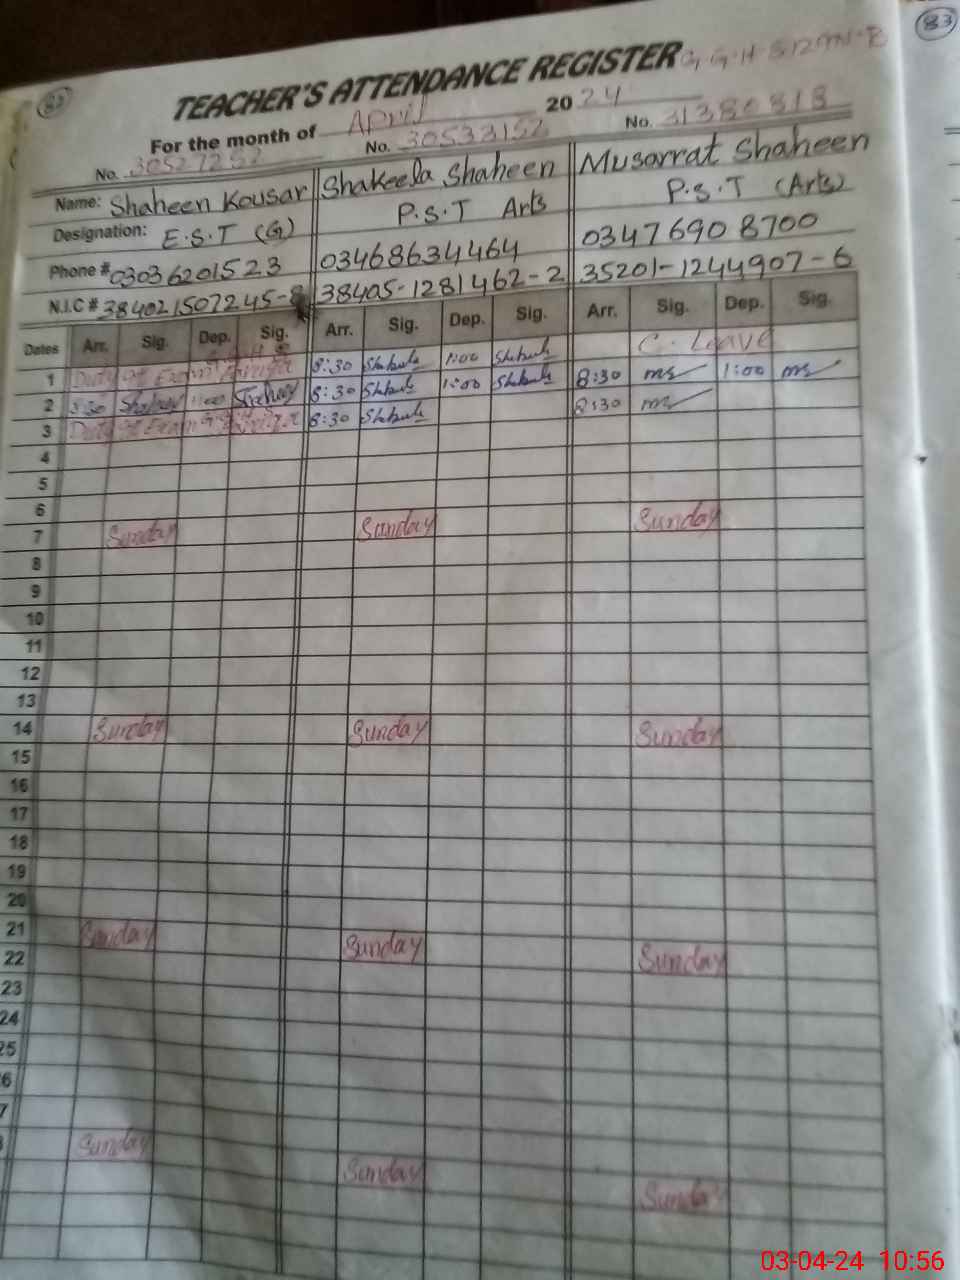 82
83
TEACHER'S ATTENDANCE REGISTER
For the month of April 2024
No. 30527252 No. 30533152 No. 31380818
Name: Shaheen Kousar Shakeela Shaheen Musarrat Shaheen
Designation: E.S.T (G) P.S.T Arts P.S.T (Arts)
Phone # 03036201523 03468634464 03476908700
N.I.C # 384021507245-8 38405-1281462-2 35201-1244907-6
Dates Arr. Sig. Dep. Sig. Arr. Sig. Dep. Sig. Arr. Sig. Dep. Sig.
1 Duty of Exam 8:30 1:00 C. Leave
2 8:30 1:00 8:30 1:00 8:30 ms 1:00 ms
3 Duty of Exam 8:30 8:30 ms
4
5
6
7 Sunday Sunday Sunday
8
9
10
11
12
13
14 Sunday Sunday Sunday
15
16
17
18
19
20
21 Sunday Sunday Sunday
22
23
24
25
6
7
Sunday Sunday Sunday
03-04-24 10:56